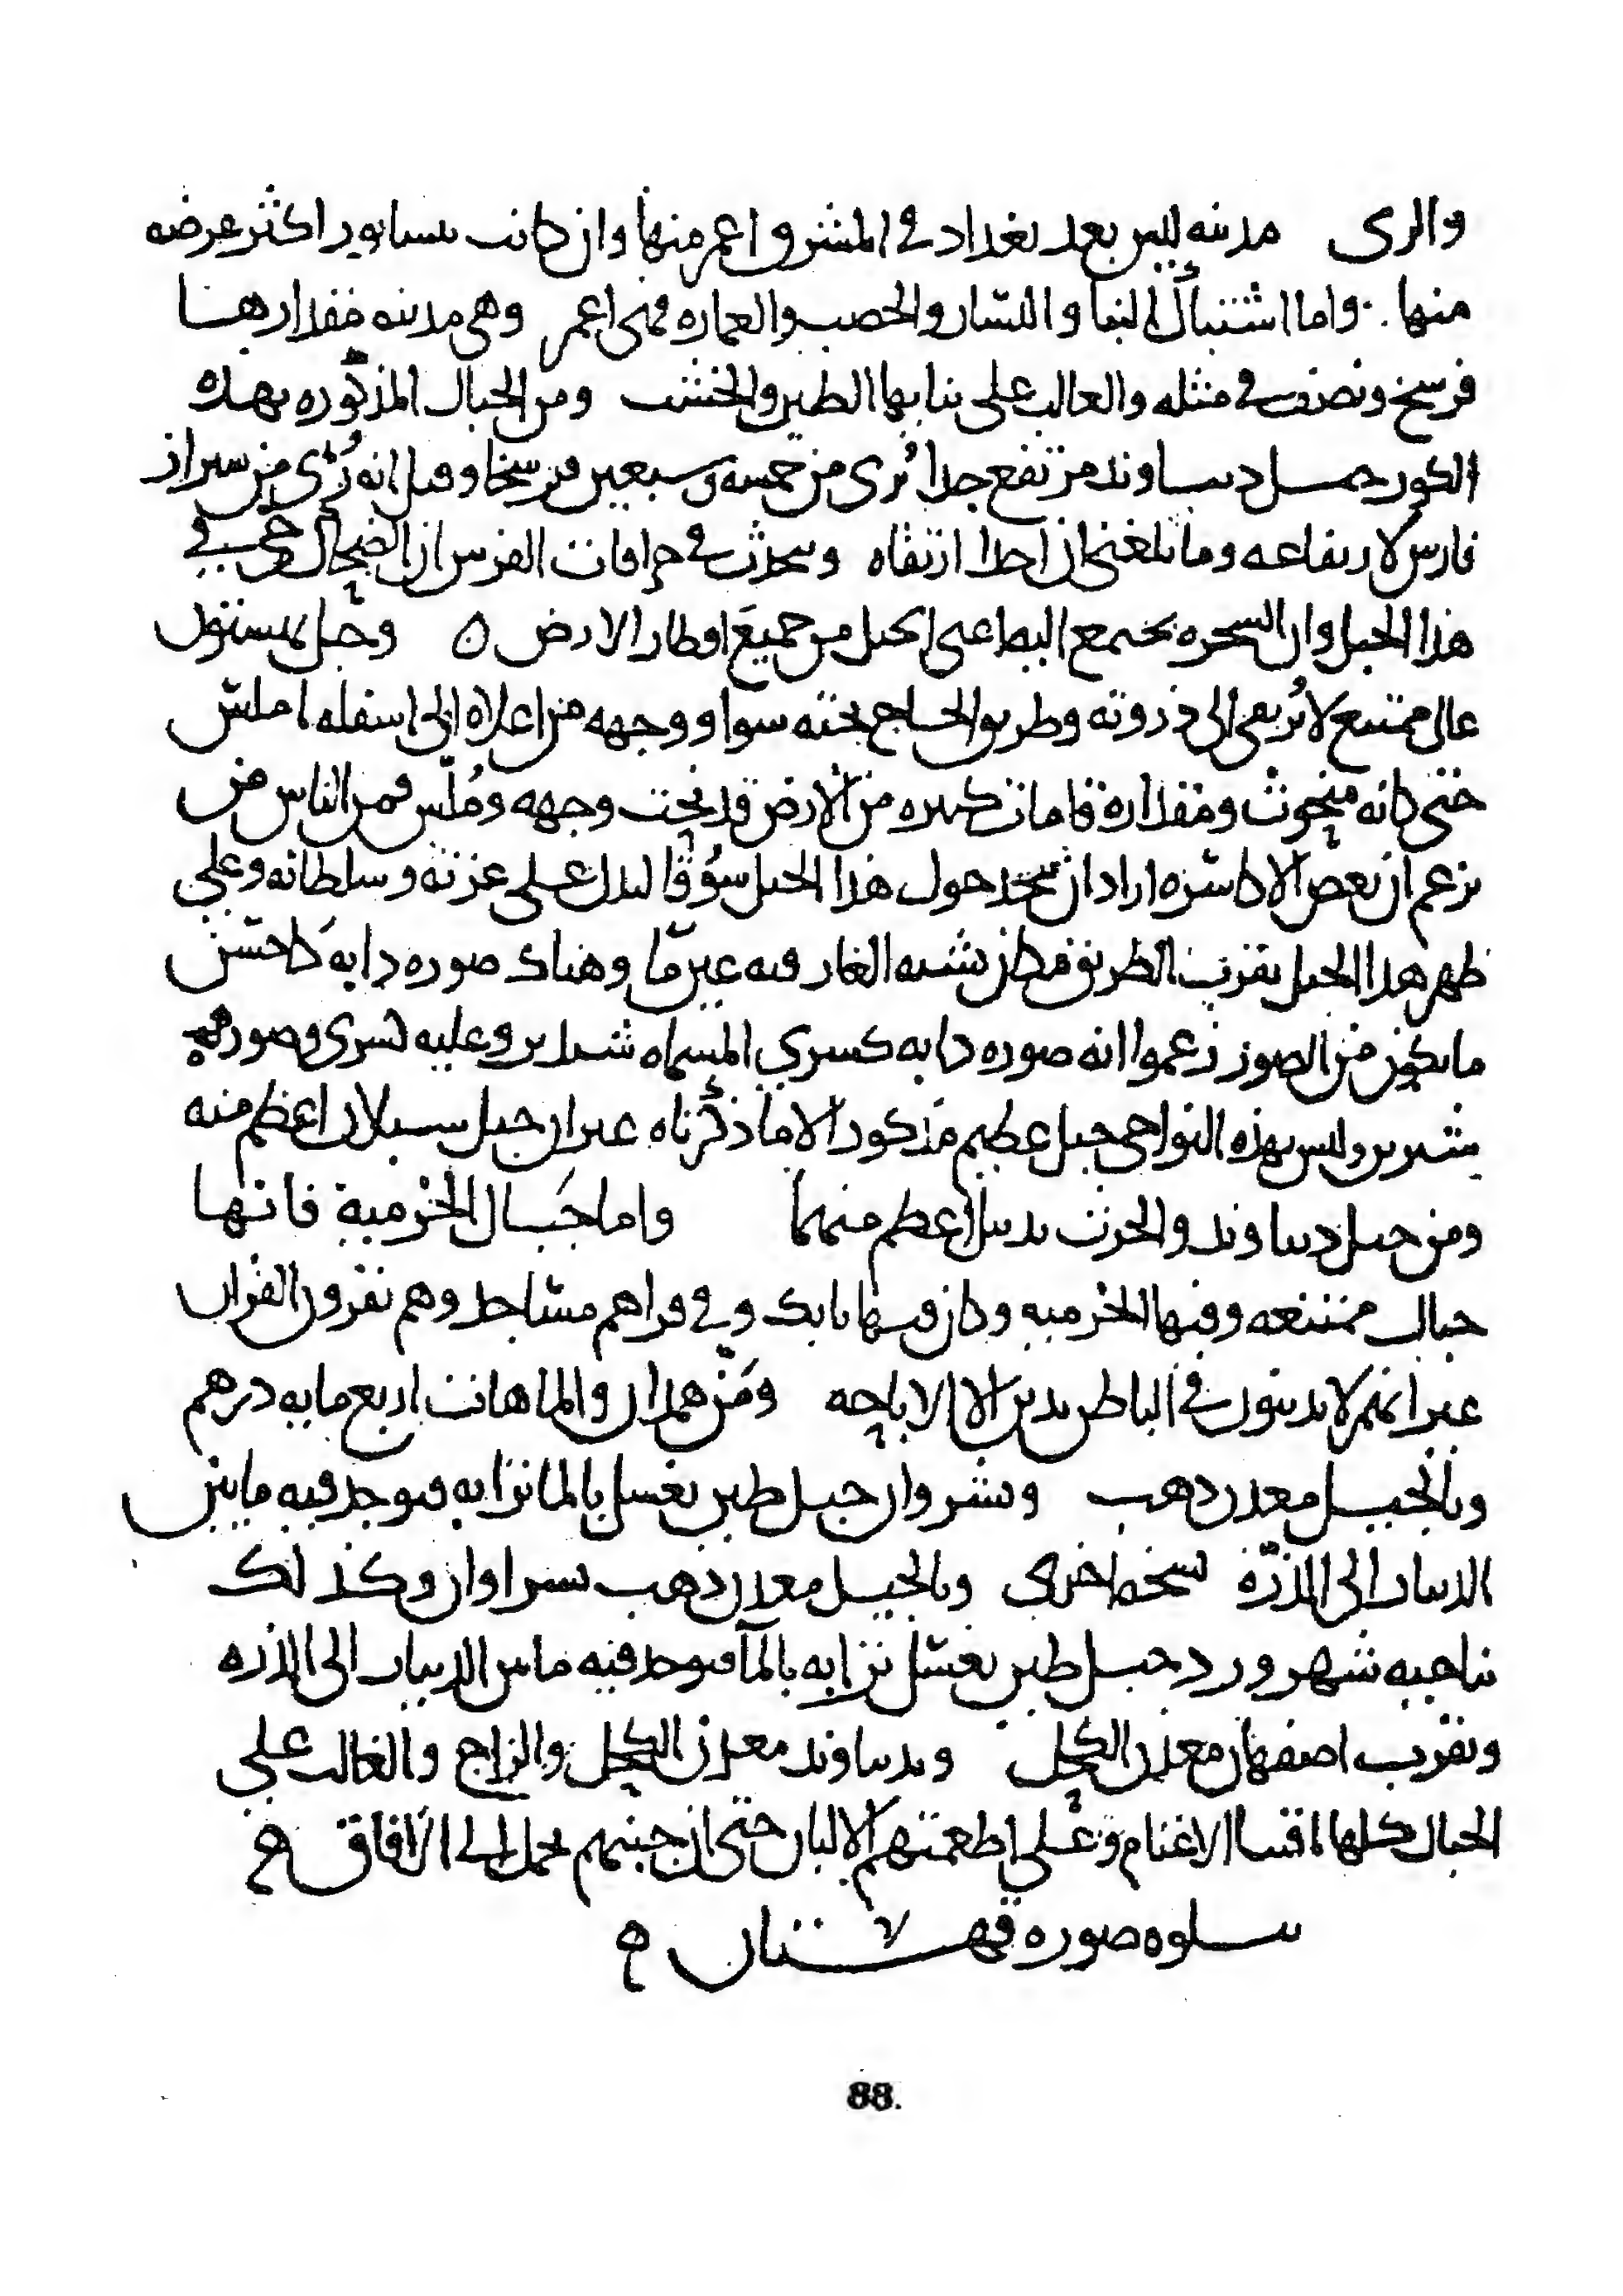 والرى مدينه ليس بعد بغداد في المشرق اعمر منها وان كانت نيسابور اكثر عرضه
منها . واما اشتباك البنا واليسار والخصب والعماره فهى اعمر وهى مدينه مقدارها
فرسخ ونصف في مثله والغالب على بنايها الطين والخشب ومن الجبال المذكوره بهذه
الكور جبل دنباوند مرتفع جدا يُرى من خمسه وسبعين فرسخا وقيل انه يُرى من شيراز
فارس لارتفاعه وما بلغنى ان احدا ارتقاه ويتحدث في خرافات الفرس ان الضحاك حي في
هذا الجبل وان السحره يجتمع اليه اعنى الجبل من جميع اقطار الارض ٥ وجبل بهستون
عالى ممتنع لا يُرتقى الى ذروته وطريق الحاج تحته سوا ووجهه من اعلاه الى اسفله املس
حتى كانه منحوت ومقداره قامات كثيره من الارض قد نحت وجهه ومُلّس فمن الناس من
يزعم ان بعض الاكاسره اراد ان يتخذ حول هذا الجبل سُوقا ليدل على عزته وسلطانه وعلى
ظهر هذا الجبل بقرب الطريق مكان شبه الغار فيه عين ما وهناك صوره دابه كاحسن
ما يكون من الصور زعموا انه صوره دابه كسرى المسماه شبديز وعليه كسرى وصورته
شيرين وليس بهذه النواحى جبل عظيم مذكور الا ما ذكرناه غير ان جبل سبلان اعظم منه
ومن جبل دنباوند والحرث بدبيل اعظم منهما واما جبال الخرمية فانها
جبال ممتنعه وفيها الخرميه وكان فيها بابك وفي قراهم مساجد وهم يقرون القران
غير انهم لا يدينون في الباطن بدين الا الاباحه ومَنّ همدان والماهات اربع مايه درهم
وبالجبل معدن ذهب وبشروان جبل طين يغسل بالما ترابه فيوجد فيه مابين
الدينار الى الذرّه نسخه اخرى وبالجبل معدن ذهب بسراوان وكذلك
ناحيه شهرورد جبل طين يغسّل ترابه بالمآ فيوجد فيه مابين الدينار الى الذره
وبقرب اصفهان معدن الكحل وبدنباوند معدن الكحل والزاج والغالب على
الجبال كلها اقتنا الاغنام وعلى اطعمتهم الالبان حتى ان جبنهم يحمل الى الآفاق
يتلوه صوره قهستان
88.